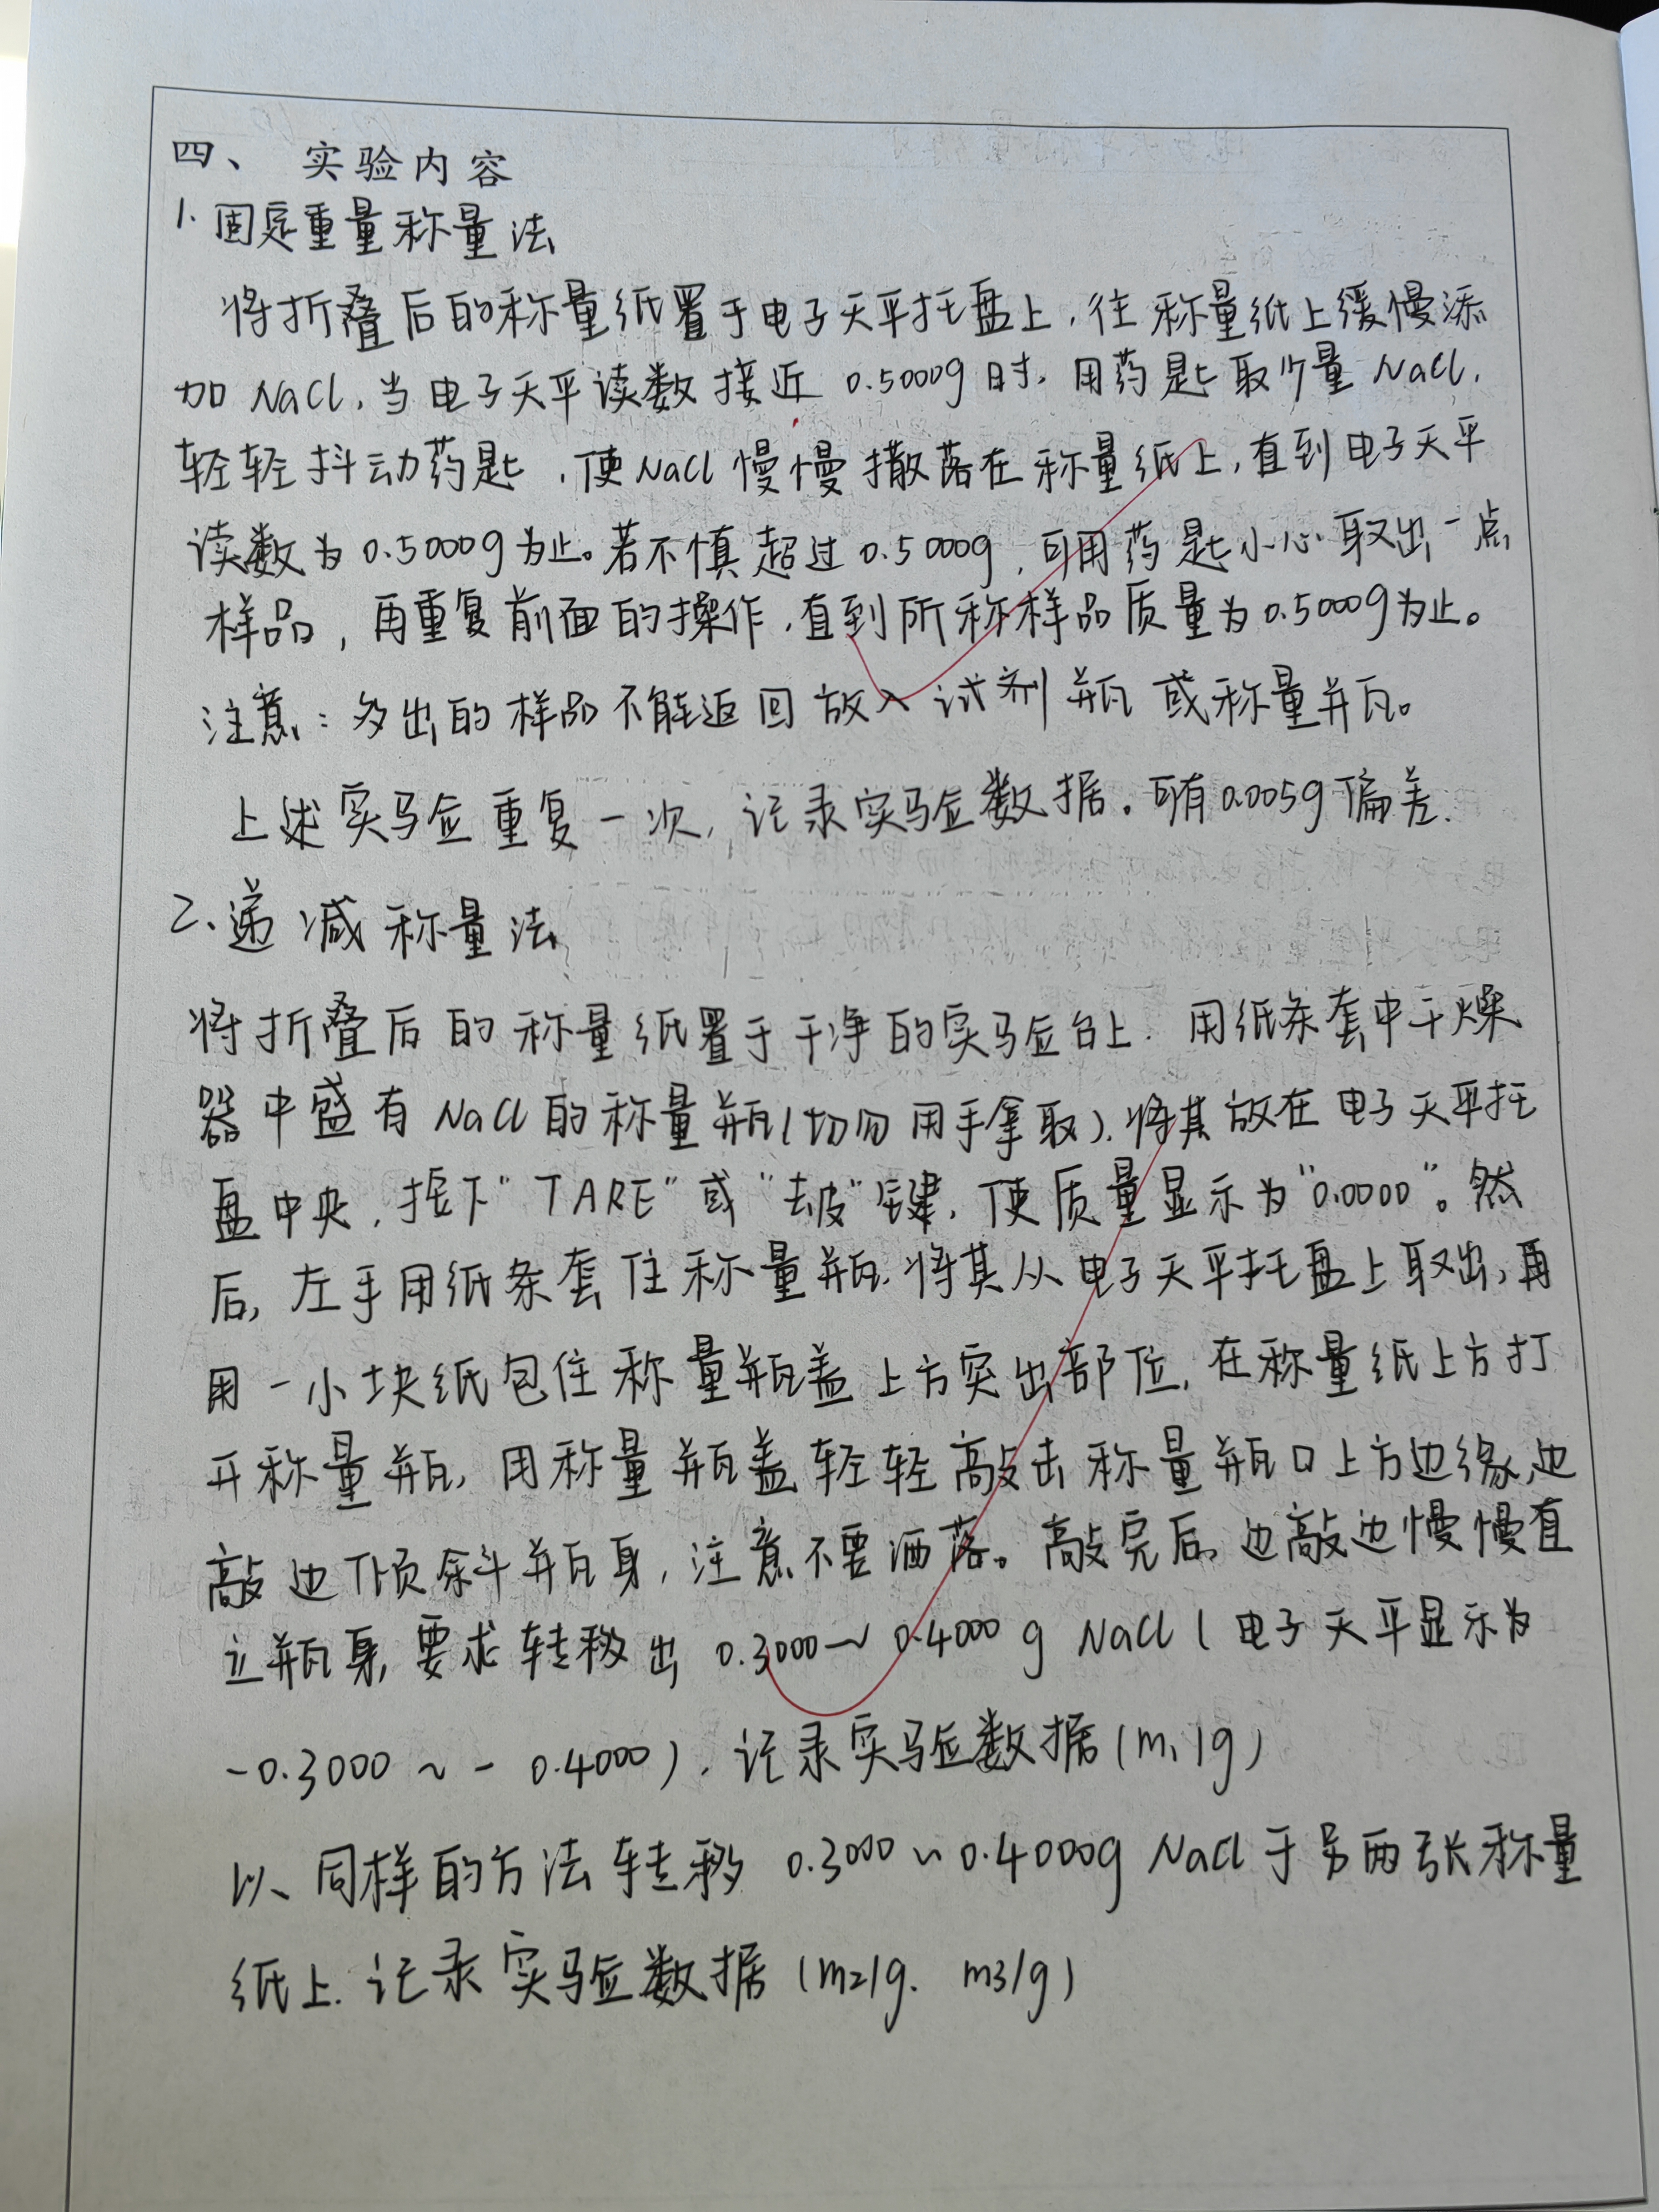 四、 实验内容
1.固定重量称量法
将折叠后的称量纸置于电子天平托盘上,往称量纸上缓慢添
加NaCl,当电子天平读数接近0.5000g时,用药匙取少量NaCl,
轻轻抖动药匙,使NaCl慢慢撒落在称量纸上,直到电子天平
读数为0.5000g为止。若不慎超过0.5000g,可用药匙小心取出一点
样品,再重复前面的操作,直到所称样品质量为0.5000g为止。
注意:多出的样品不能返回放入试剂瓶或称量瓶。
上述实验重复一次,记录实验数据。可有0.005g偏差.
2、递减称量法
将折叠后的称量纸置于干净的实验台上.用纸条套中干燥
器中盛有NaCl的称量瓶(切勿用手拿取),将其放在电子天平托
盘中央,按下"TARE"或"去皮"键,使质量显示为"0.0000"。然
后,左手用纸条套住称量瓶,将其从电子天平托盘上取出,再
用一小块纸包住称量瓶盖上方突出部位,在称量纸上方打
开称量瓶,用称量瓶盖轻轻敲击称量瓶口上方边缘,边
敲边倾斜瓶身,注意不要洒落。敲完后,边敲边慢慢直
立瓶身,要求转移出0.3000~0.4000g NaCl(电子天平显示为
-0.3000~-0.4000),记录实验数据(m1/g)
以同样的方法转移0.3000~0.4000g NaCl于另两张称量
纸上.记录实验数据(m2/g. m3/g)